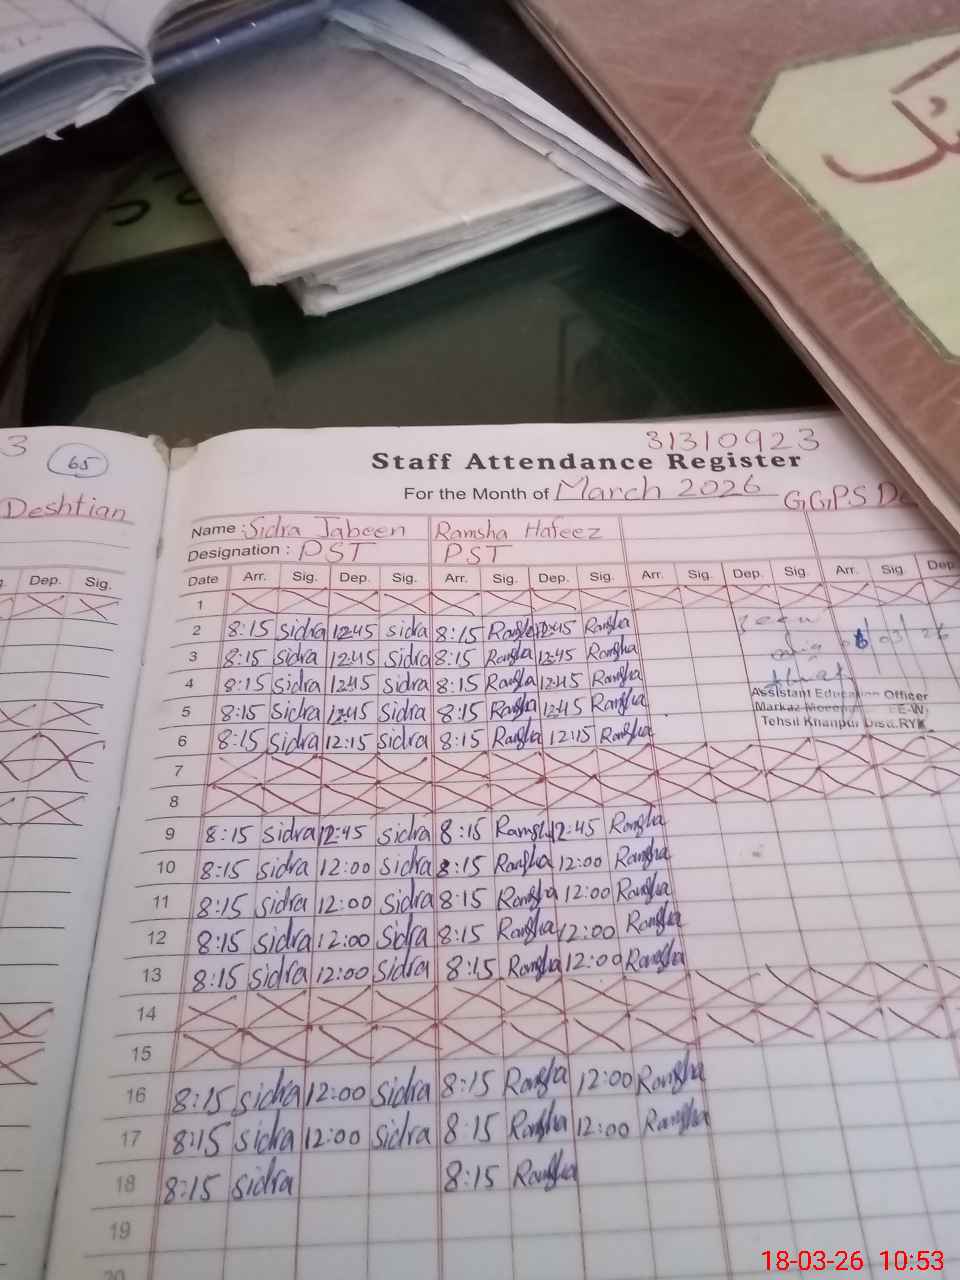 3
65
Deshtian
Dep. Sig.
31310923
Staff Attendance Register
For the Month of March 2026
G.G.P.S
Name : Sidra Jabeen Ramsha Hafeez
Designation : PST PST
Date Arr. Sig. Dep. Sig. Arr. Sig. Dep. Sig. Arr. Sig. Dep. Sig. Arr. Sig. Dep.
1
2 8:15 Sidra 12:45 Sidra 8:15 Ramsha 12:45 Ramsha
3 8:15 Sidra 12:45 Sidra 8:15 Ramsha 12:45 Ramsha
4 8:15 Sidra 12:45 Sidra 8:15 Ramsha 12:45 Ramsha
Assistant Education Officer
5 8:15 Sidra 12:45 Sidra 8:15 Ramsha 12:45 Ramsha
Markaz
Tehsil Khanpur Distt.RYK
6 8:15 Sidra 12:15 Sidra 8:15 Ramsha 12:15 Ramsha
7
8
9 8:15 Sidra 12:45 Sidra 8:15 Ramsha 12:45 Ramsha
10 8:15 Sidra 12:00 Sidra 8:15 Ramsha 12:00 Ramsha
11 8:15 Sidra 12:00 Sidra 8:15 Ramsha 12:00 Ramsha
12 8:15 Sidra 12:00 Sidra 8:15 Ramsha 12:00 Ramsha
13 8:15 Sidra 12:00 Sidra 8:15 Ramsha 12:00 Ramsha
14
15
16 8:15 Sidra 12:00 Sidra 8:15 Ramsha 12:00 Ramsha
17 8:15 Sidra 12:00 Sidra 8:15 Ramsha 12:00 Ramsha
18 8:15 Sidra 8:15 Ramsha
19
20
18-03-26 10:53